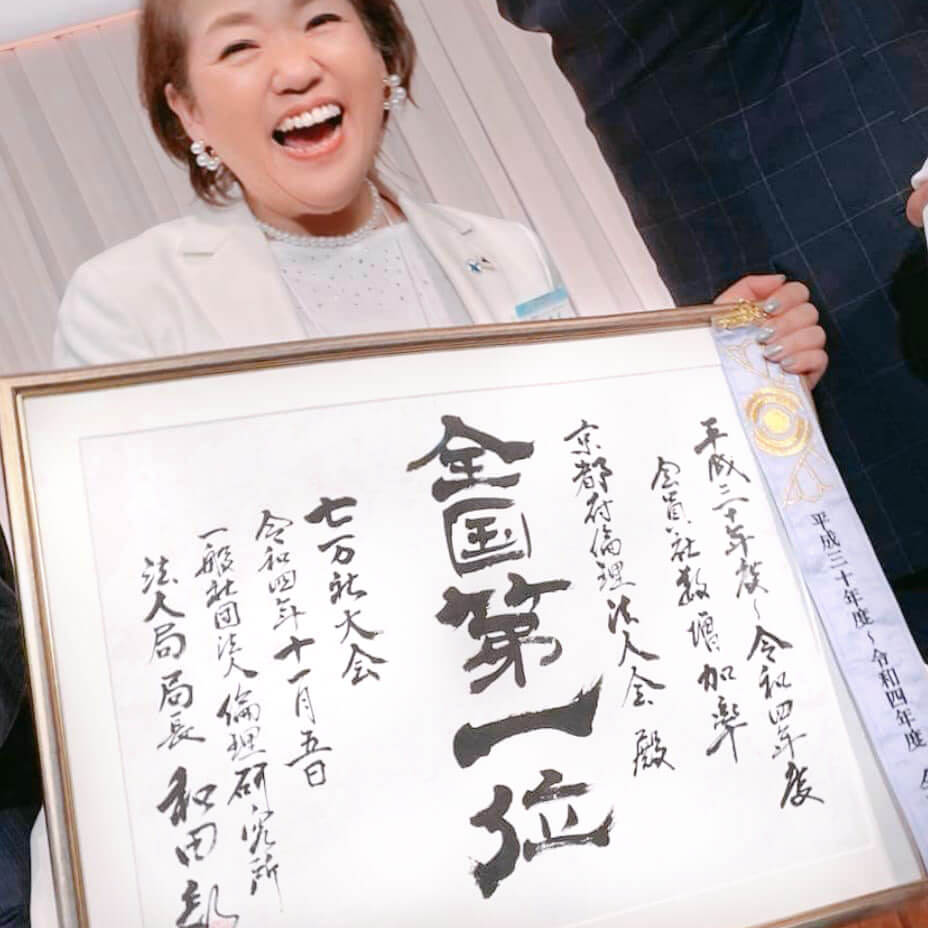 平成三十年度〜令和四年度
会員社数増加率
京都府倫理法人会 殿
全国第一位
七万社大会
令和四年十一月五日
一般社団法人倫理研究所
法人局局長 和田
平成三十年度〜令和四年度